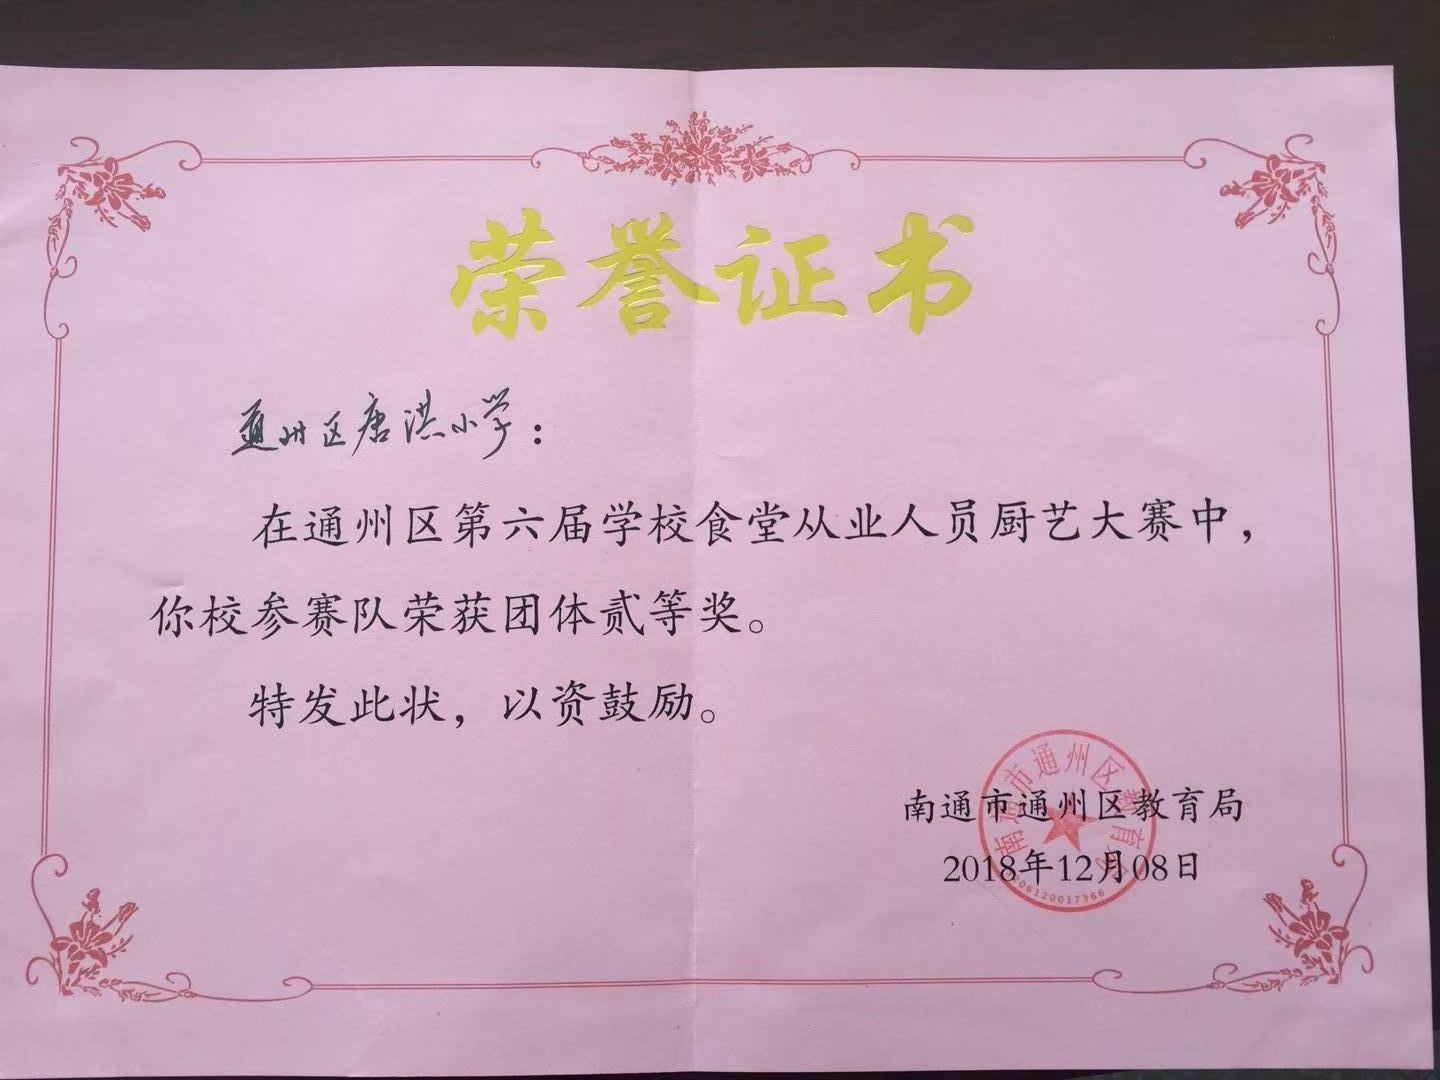 荣誉证书
通州区唐洪小学：
在通州区第六届学校食堂从业人员厨艺大赛中，
你校参赛队荣获团体贰等奖。
特发此状，以资鼓励。
南通市通州区教育局
2018年12月08日
南通市通州区教育局